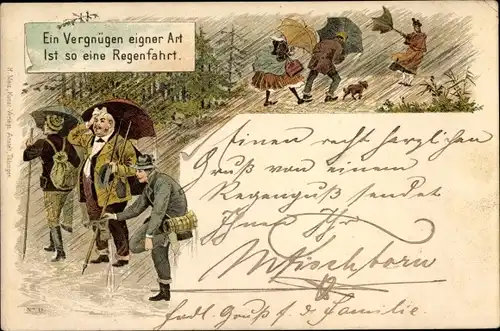 Ein Vergnügen eigner Art
Ist so eine Regenfahrt.
Einen recht herzlichen
Gruß von einem
Regenguß sendet
Ihnen Ihr
WFischborn
Gruß s. d. Familie.